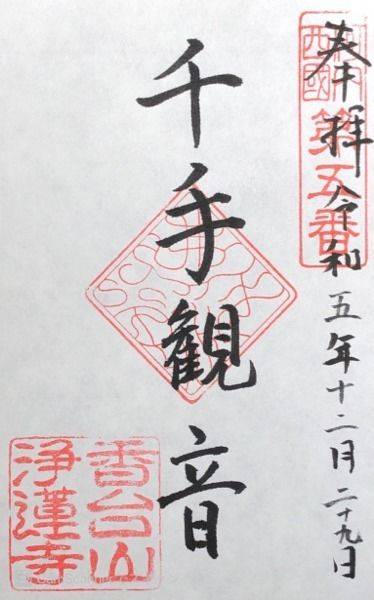 奉拝 令和五年十二月二十九日
西國
第五番
千手観音
香台山
浄蓮寺